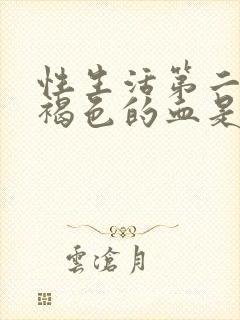 性生活第二
褐色的血是
雲滄月